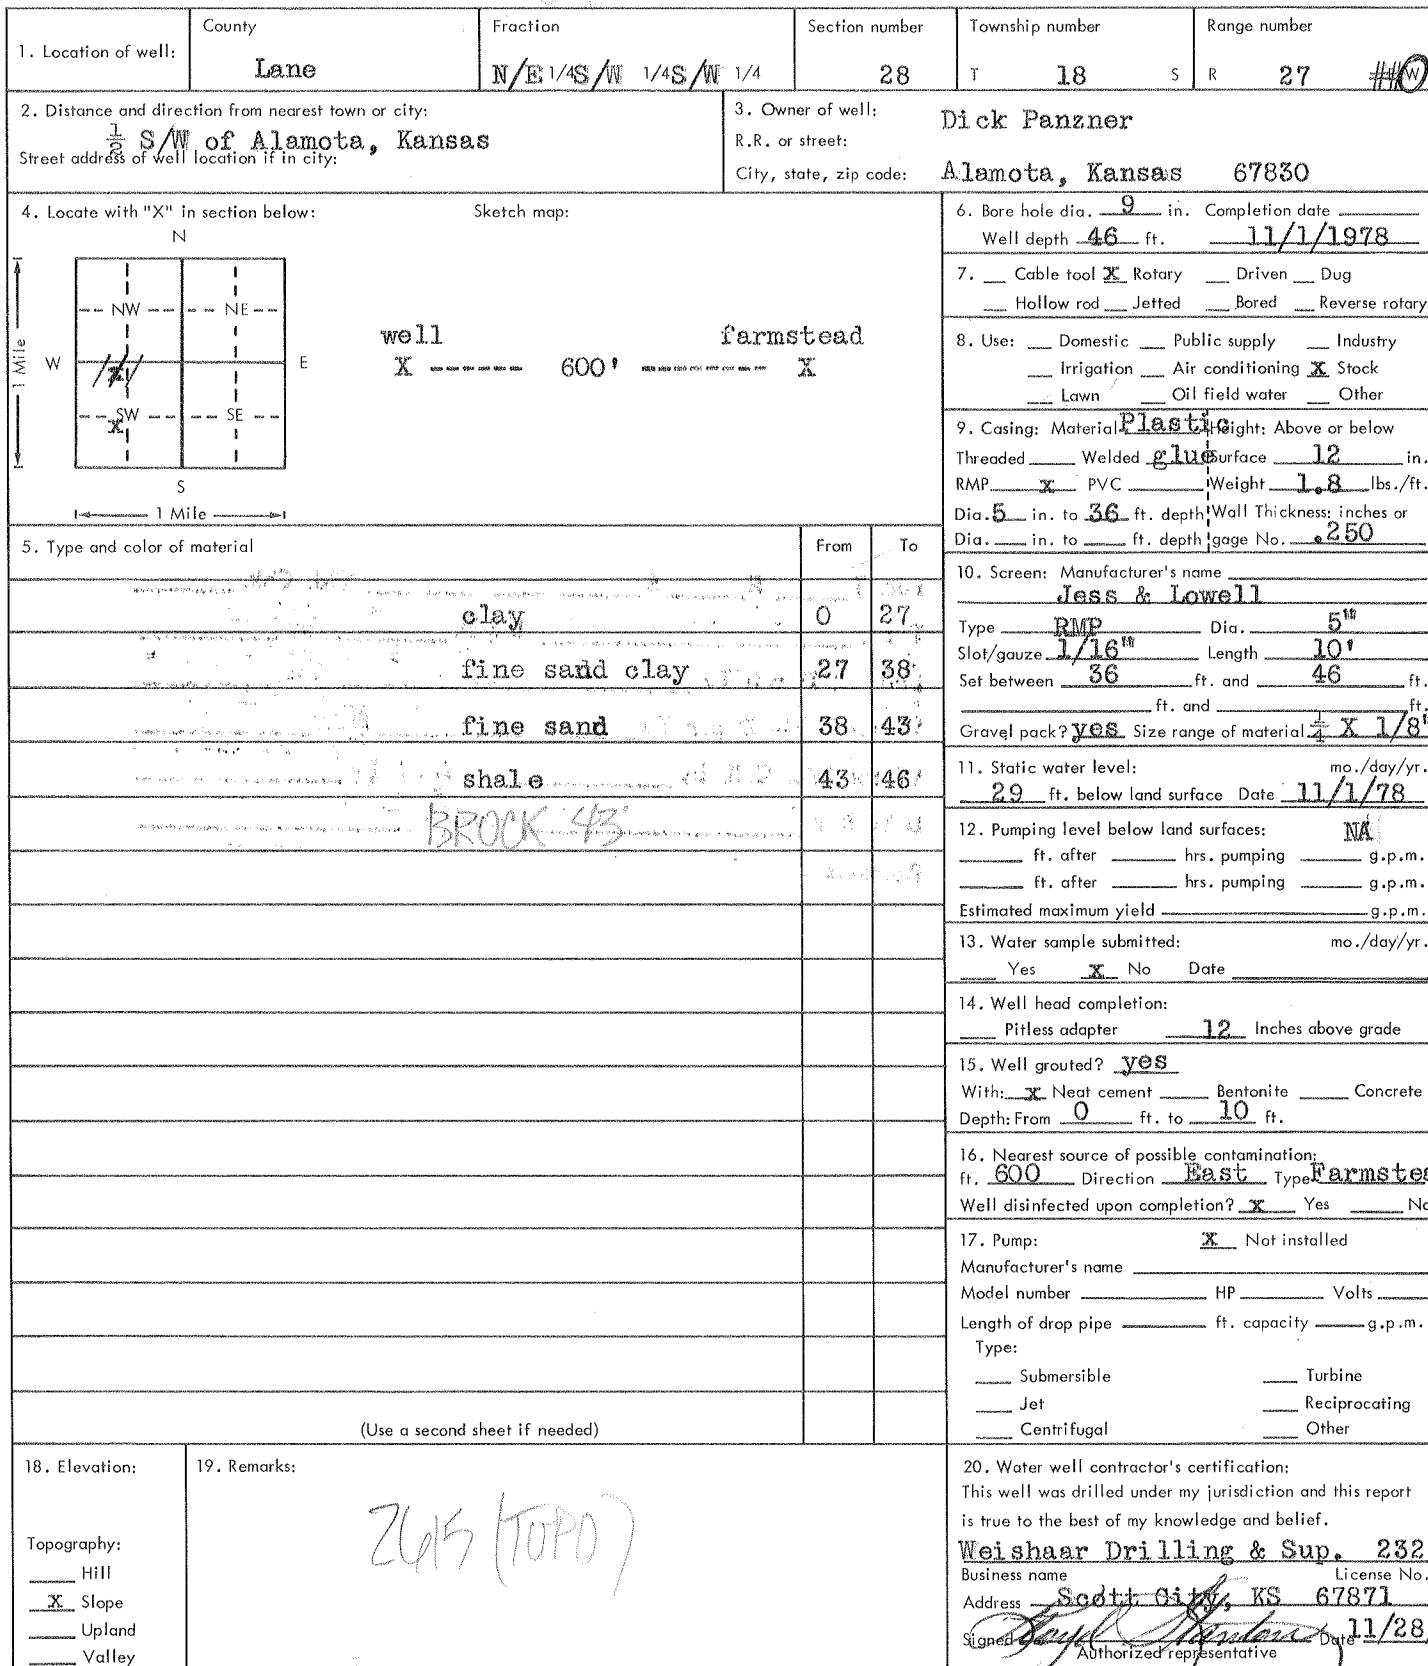 1. Location of well: County Lane Fraction N/E 1/4 S/W 1/4 S/W 1/4 Section number 28 Township number T 18 S Range number R 27 W
2. Distance and direction from nearest town or city:
1/2 S/W of Alamota, Kansas
Street address of well location if in city:
3. Owner of well: Dick Panzner
R.R. or street:
City, state, zip code: Alamota, Kansas 67830
4. Locate with "X" in section below: Sketch map:
N
NW NE
W E
X
SW SE
X
S
1 Mile
1 Mile
well farmstead
X ------ 600' ------ X
5. Type and color of material From To
clay 0 27
fine sand clay 27 38
fine sand 38 43
shale 43 46
BROCK 43'
(Use a second sheet if needed)
6. Bore hole dia. 9 in. Completion date
Well depth 46 ft. 11/1/1978
7. __ Cable tool X Rotary __ Driven __ Dug
__ Hollow rod __ Jetted __ Bored __ Reverse rotary
8. Use: __ Domestic __ Public supply __ Industry
__ Irrigation __ Air conditioning X Stock
__ Lawn __ Oil field water __ Other
9. Casing: Material Plastic Height: Above or below
Threaded __ Welded glue Surface 12 in.
RMP X PVC __ Weight 1.8 lbs./ft.
Dia. 5 in. to 36 ft. depth Wall Thickness: inches or
Dia. __ in. to __ ft. depth gage No. .250
10. Screen: Manufacturer's name
Jess & Lowell
Type RMP Dia. 5"
Slot/gauze 1/16" Length 10'
Set between 36 ft. and 46 ft.
__ ft. and __ ft.
Gravel pack? yes Size range of material 1/4 X 1/8"
11. Static water level: mo./day/yr.
29 ft. below land surface Date 11/1/78
12. Pumping level below land surfaces: NA
__ ft. after __ hrs. pumping __ g.p.m.
__ ft. after __ hrs. pumping __ g.p.m.
Estimated maximum yield __ g.p.m.
13. Water sample submitted: mo./day/yr.
__ Yes X No Date __
14. Well head completion:
__ Pitless adapter 12 Inches above grade
15. Well grouted? yes
With: X Neat cement __ Bentonite __ Concrete
Depth: From 0 ft. to 10 ft.
16. Nearest source of possible contamination:
ft. 600 Direction East Type Farmstea
Well disinfected upon completion? X Yes __ No
17. Pump: X Not installed
Manufacturer's name
Model number __ HP __ Volts __
Length of drop pipe __ ft. capacity __ g.p.m.
Type:
__ Submersible __ Turbine
__ Jet __ Reciprocating
__ Centrifugal __ Other
18. Elevation:
Topography:
__ Hill
X Slope
__ Upland
__ Valley
19. Remarks:
2615 (TOPO)
20. Water well contractor's certification:
This well was drilled under my jurisdiction and this report
is true to the best of my knowledge and belief.
Weishaar Drilling & Sup. 232
Business name License No.
Address Scott City, KS 67871
Signed Date 11/28/
Authorized representative